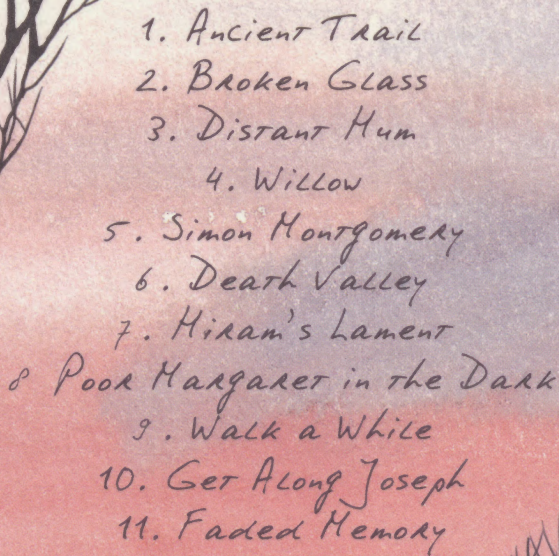 1. Ancient Trail
2. Broken Glass
3. Distant Hum
4. Willow
5. Simon Montgomery
6. Death Valley
7. Hiram's Lament
8 Poor Margaret in the Dark
9. Walk a While
10. Get Along Joseph
11. Faded Memory